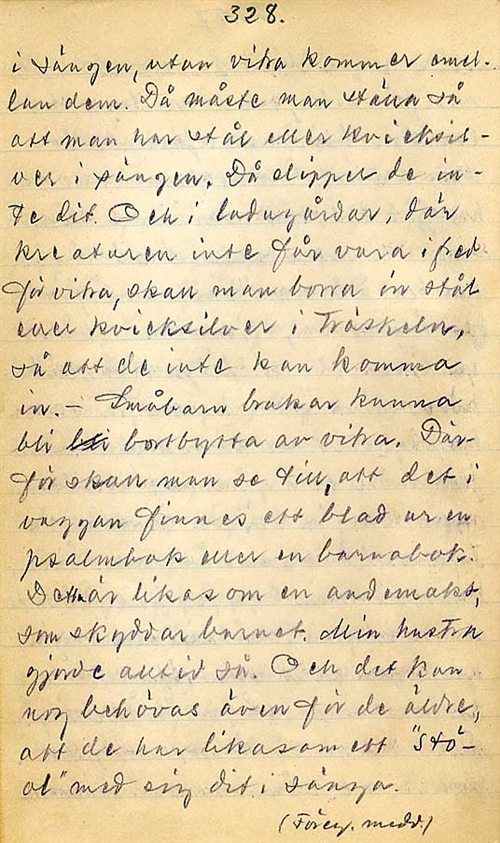 328.
i sängen, utan vitra kommer emel-
lan dem. Då måste man ställa så
att man har stål eller kvicksil-
ver i sängen. Då slipper de in-
te dit. Och i ladugårdar, där
kreaturen inte får vara i fred
för vitra, skall man borra in stål
eller kvicksilver i tröskeln,
så att de inte kan komma
in. – Småbarn brukar kunna
bli bli bortbytta av vitra. Där-
för skall man se till, att det i
vaggan finnes ett blad ur en
psalmbok eller en barnabok.
Detta är likasom en andemakt,
som skyddar barnet. Min hustru
gjorde alltid så. Och det kan
nog behövas även för de äldre,
att de har likasom ett "stö-
d" med sig dit i sänga.
(Föreg. medd.)